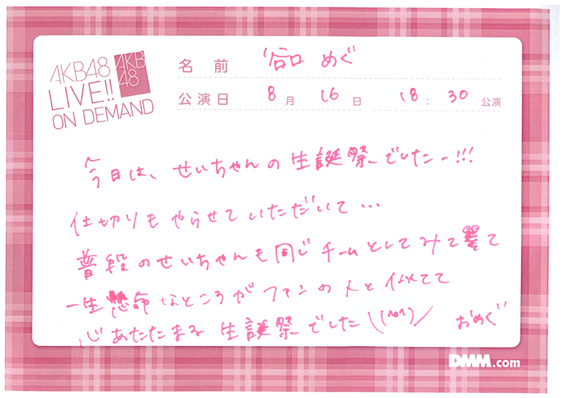 AKB48
LIVE!!
ON DEMAND
AKB
48
名前 谷口 めぐ
公演日 8月 16日 18:30 公演
今日は、せいちゃんの生誕祭でしたー!!!
仕切りもやらせていただいて...
普段のせいちゃんも同じチームとしてみてて
一生懸命なところがファンの人と似てて
心あたたまる生誕祭でした\(^o^)/ おめぐ
DMM.com